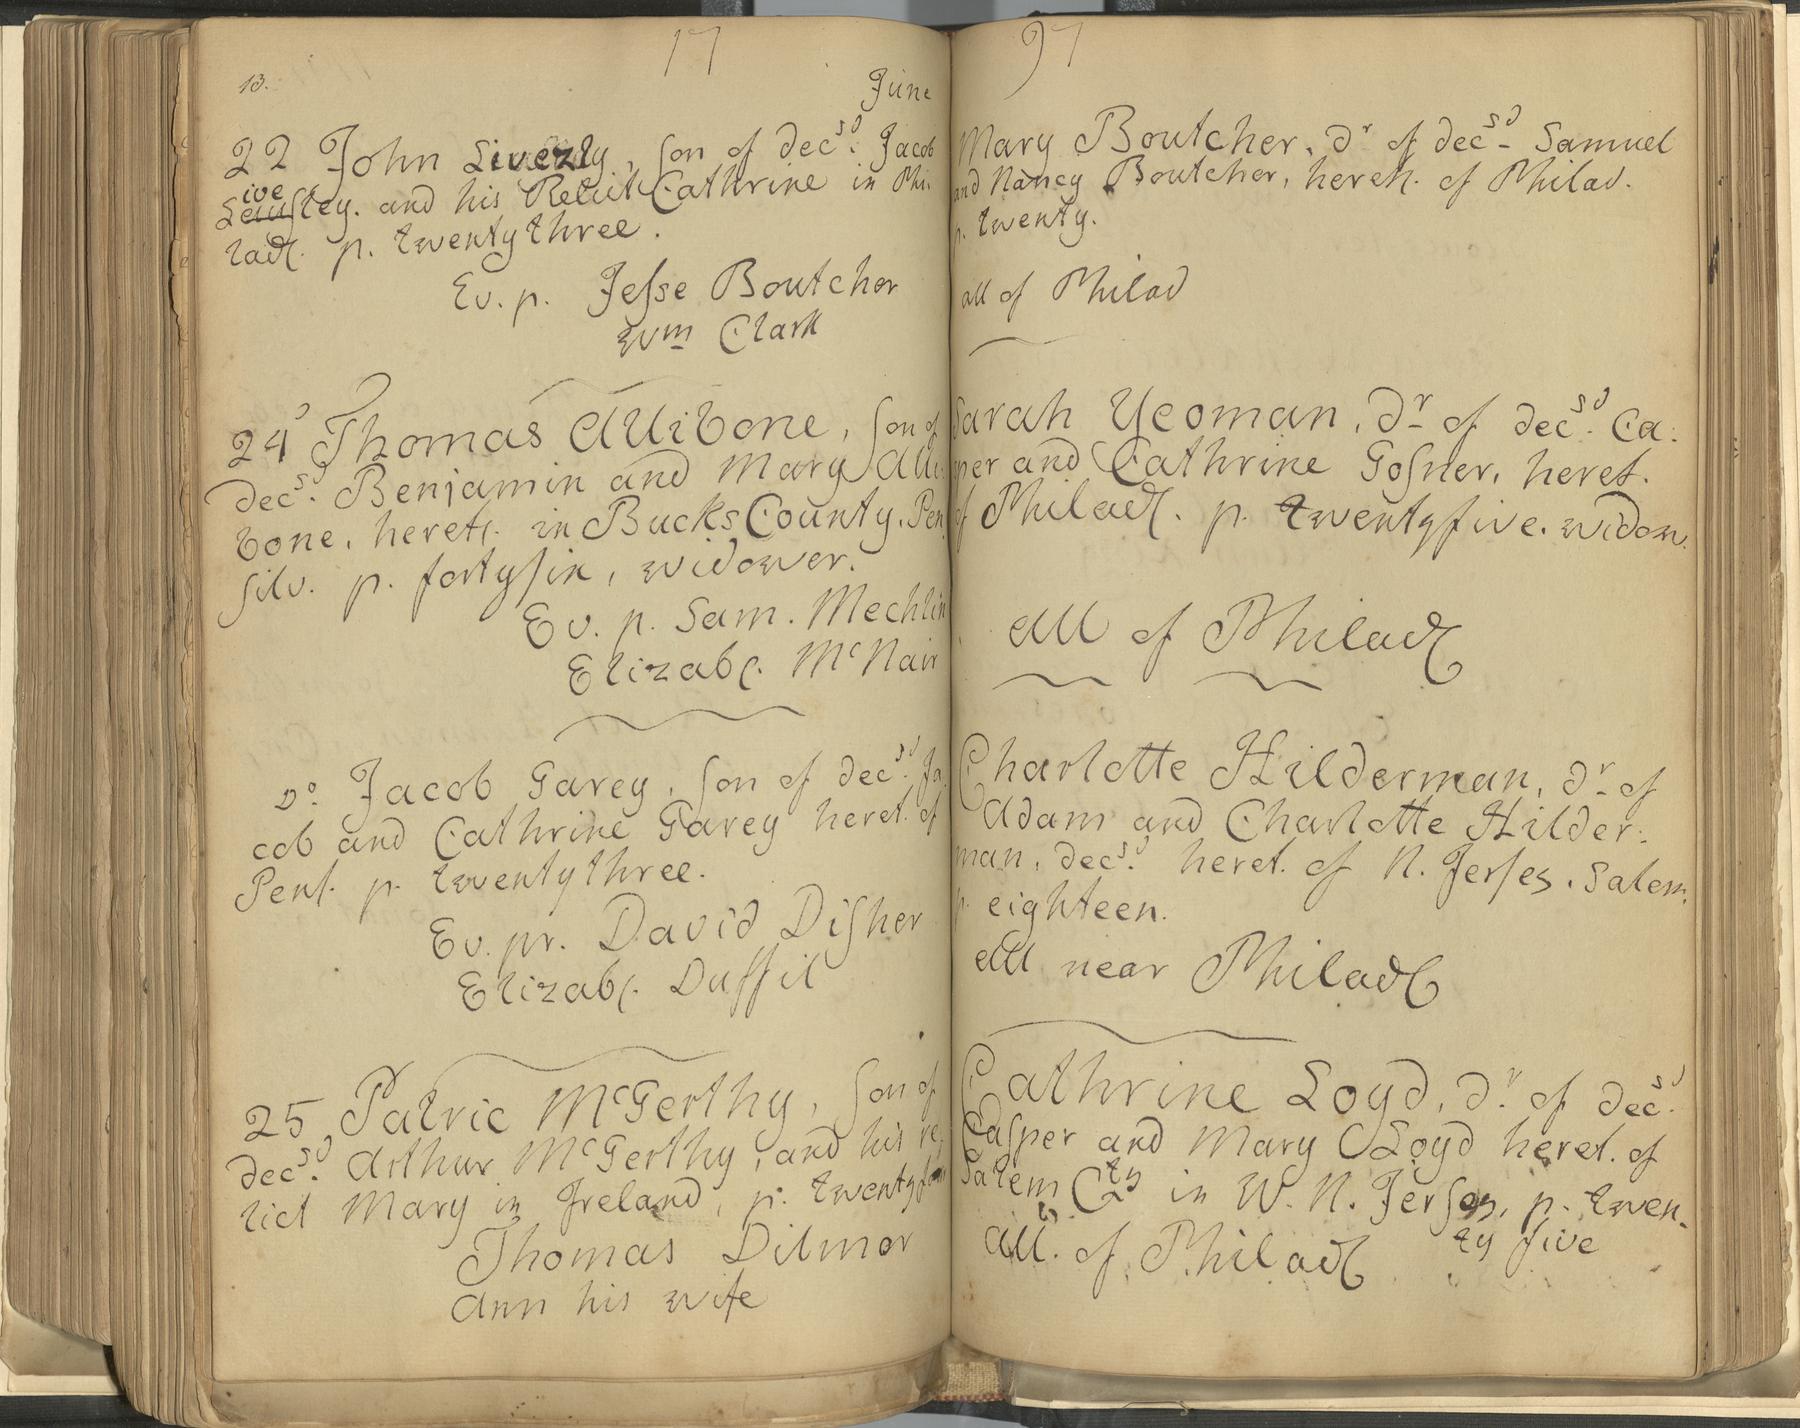 17
13.
June
22 John Liverly, son of decsd. Jacob
ive
Leiusley. and his Relict Cathrine in Phi
lad. p. twentythree.
Ev. p. Jesse Boutcher
Wm Clark
24 Thomas Allibone, son of
decsd. Benjamin and Mary Alli
bone, heret. in Bucks County, Pen
silv. p. fortysix, widower.
Ev. p. Sam. Mechlin
Elizab. McNair
Do. Jacob Garey, son of decsd. Ja
cob and Cathrine Garey heret. of
Pens. p. twentythree.
Ev. pr. David Disher
Elizab. Duffil
25 Patric McGerthy, son of
decsd. Arthur McGerthy, and his re
lict Mary in Ireland, p. twenty
Thomas Dilmor
Ann his wife
97
Mary Boutcher, dr of decsd Samuel
and Nancy Boutcher, hereh. of Philad.
p. twenty.
all of Philad
Sarah Yeoman, dr of decsd. Ca:
sper and Cathrine Gosner, heret.
of Philad. p. twentyfive. widow.
all of Philad
Charlotte Hilderman, dr of
Adam and Charlotte Hilder:
man, decsd. heret. of N. Jersey, Salem,
p. eighteen.
all near Philad
Cathrine Loyd, dr. of decsd.
Casper and Mary Loyd heret. of
Salem Cty in W. N. Jersey, p. twen-
ty five
all. of Philad